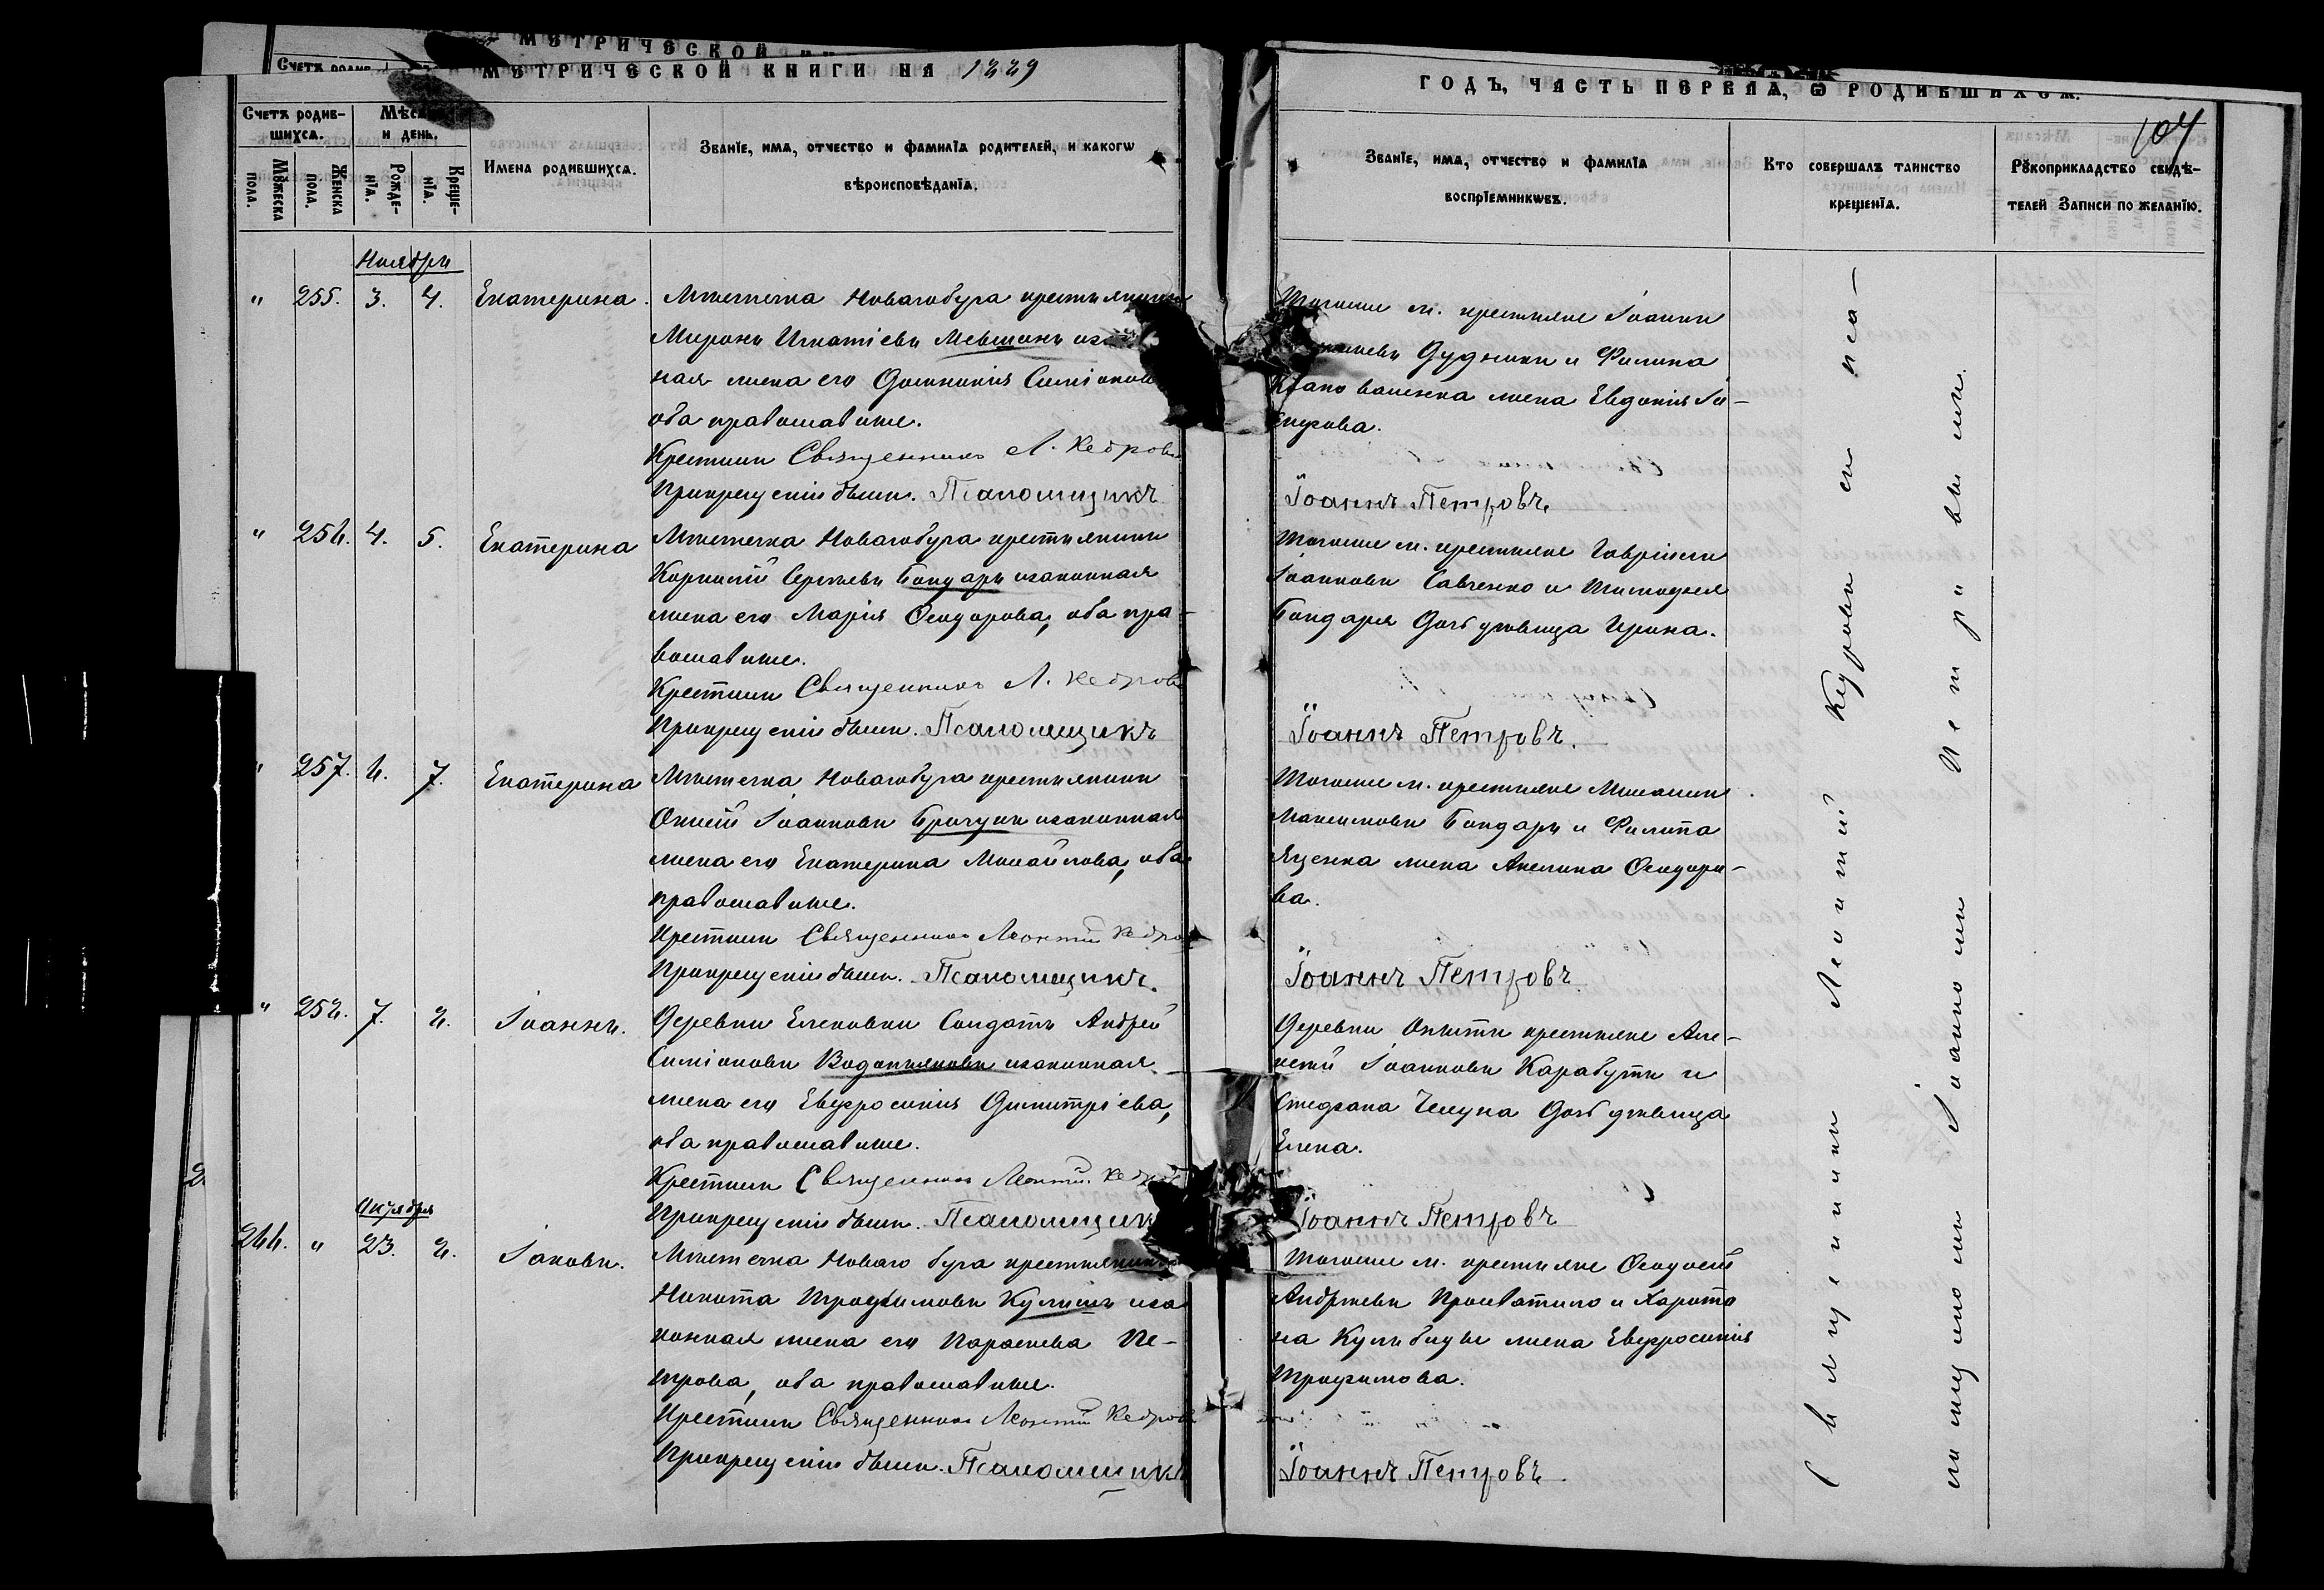 МЕТРИЧЕСКОЙ КНИГИ НА 1889
ГОДЪ, ЧАСТЬ ПЕРВАЯ, Ѡ РОДИВШИХСЯ.
104
Счетъ родив-
шихся.
Мѣся
и день.
Мꙋжеска
пола.
Женска
пола.
Рожде-
нїя.
Креще-
нїя.
Имена родившихся.
Званїе, имя, отчество и фамилїя родителей, и какогѡ
вѣроисповѣданїя.
Званїе, имя, отчество и фамилїя
воспрїемникѡвъ.
Кто совершалъ таинство
крещенїя.
Рꙋкоприкладство свидѣ-
телей записи по желанїю.
Ноября
" 255. 3. 4. Екатерина.
Мѣстечка Новагобуга крестьянинъ
Миронъ Игнатіевъ Левшонъ иза
ная жена его Домникія Симіонов
оба православные.
Крестилъ Священникъ Л. Кедровъ
При крещеніи былъ. Псаломщикъ
Тогоже м. крестьяне Іоаннъ
Дудникъ и Филипа
жена Евдокія Іо-
сифова.
Іоаннъ Петровъ.
" 256. 4. 5. Екатерина
Мѣстечка Новагобуга крестьянинъ
Корнилій Сергѣевъ Бондарь изаконная
жена его Марія Ѳеодорова, оба пра-
вославные.
Крестилъ Священникъ Л. Кедровъ
При крещеніи былъ. Псаломщикъ
Тогоже м. крестьяне Гавріилъ
Іоанновъ Савченко и Тимоѳея
Бондаря Дочь дѣвица Ирина.
Іоаннъ Петровъ.
" 257. 6. 7. Екатерина
Мѣстечка Новагобуга крестьянинъ
Іоанновъ изаконная
жена его Екатерина Михайлова, оба
православные.
Крестилъ Священникъ Леонтій Кедров
При крещеніи былъ. Псаломщикъ.
Тогоже м. крестьяне Михаилъ
Максимовъ Бондарь и Филипа
Яценка жена Акилина Ѳеодоро-
ва.
Іоаннъ Петровъ.
" 258. 7. 8. Іоаннъ.
Деревни Еленовки Солдатъ Андрей
Симіоновъ Водопьяновъ изаконная
жена его Евфросинія Димитріева,
оба православные.
Крестилъ Священникъ Леонтій Кедров
При крещеніи былъ. Псаломщикъ
Деревни крестьяне Але-
ксѣй Іоанновъ Карабутъ и
Стефана Дочь дѣвица
Елена.
Іоаннъ Петровъ
Октября
266. " 23. 8. Іаковъ.
Мѣстечка Новаго буга крестьянинъ
Никита Трофимовъ Кулишъ иза
конная жена его Параскева Пе-
трова, оба православные.
Крестилъ Священникъ Леонтій Кедровъ
При крещеніи былъ. Псаломщикъ
Тогоже м. крестьяне Ѳеодосій
Андреевъ и Харито
на жена Евфросинія
Трофимова.
Іоаннъ Петровъ.
Священникъ Леонтій Кедровъ съ пса-
ломщикомъ Іоанномъ Петровымъ.